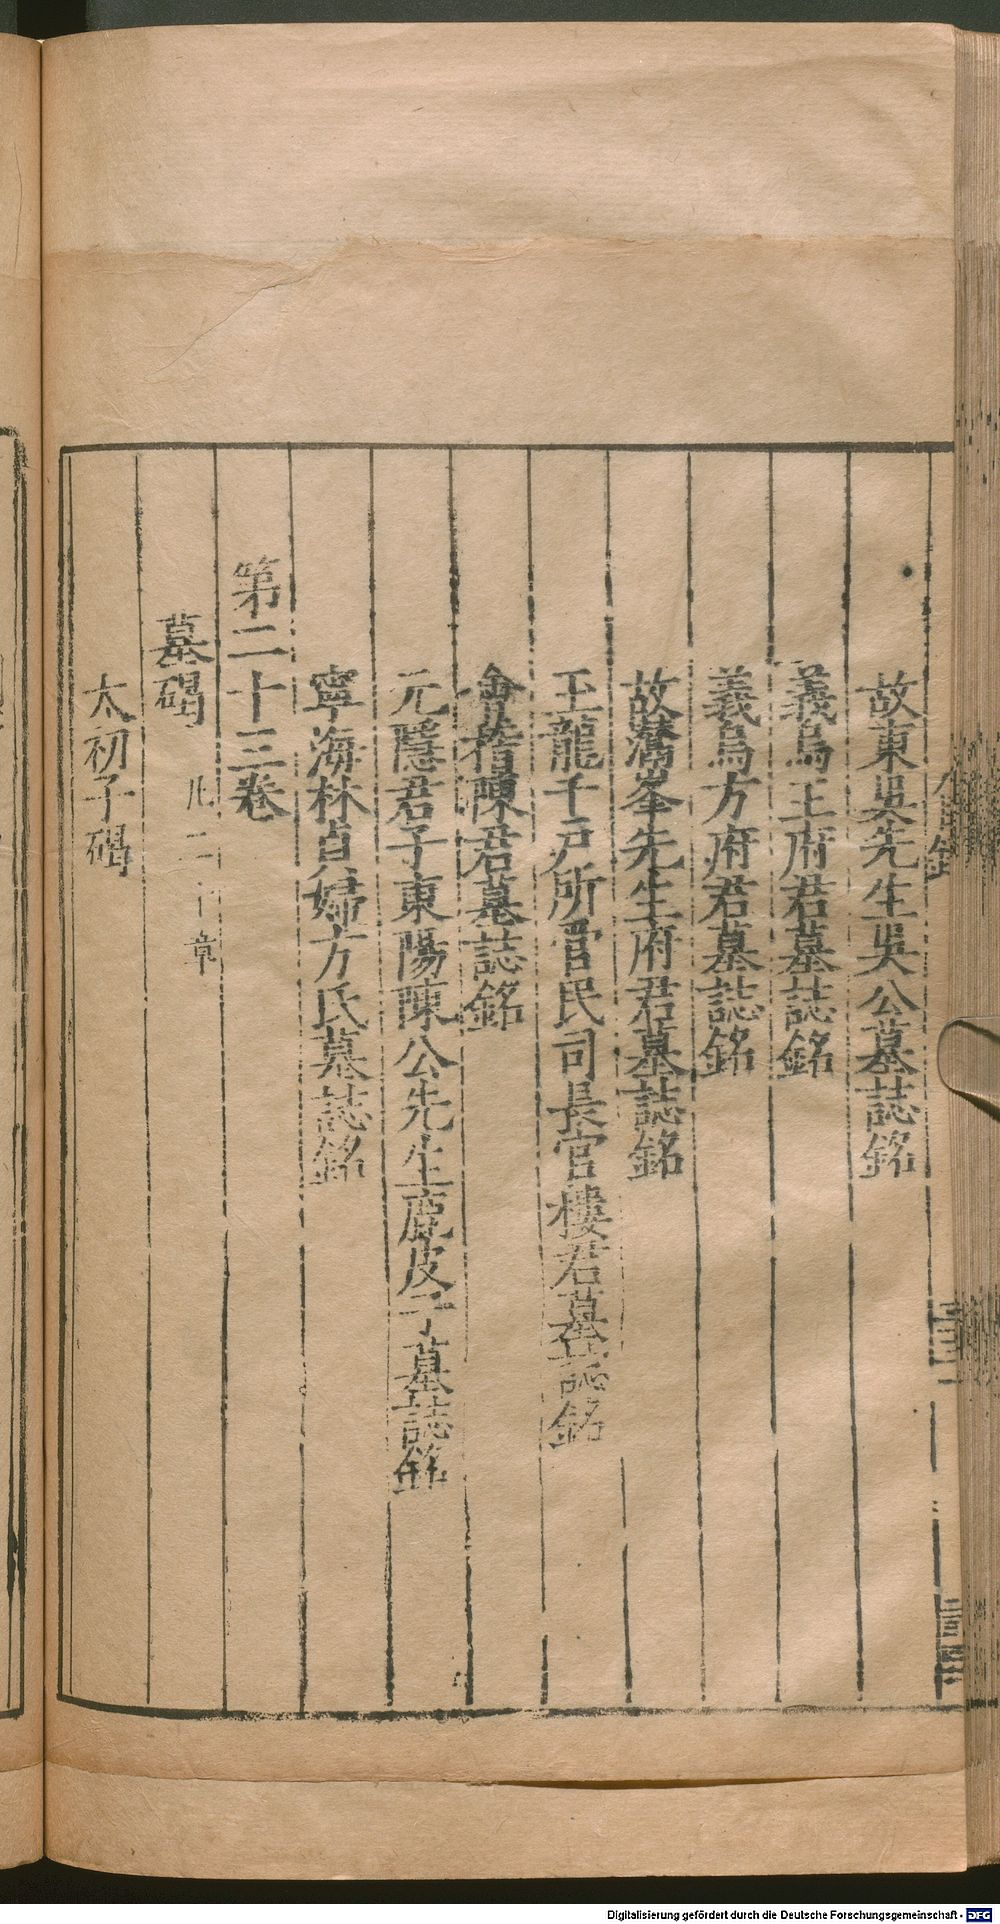 故東吳先生吳公墓誌銘
義烏王府君墓誌銘
義烏方府君墓誌銘
故蕅峯先生府君墓誌銘
玉龍千戶所管民司長官樓君墓誌銘
會稽陳君墓誌銘
元隱君子東陽陳公先生鹿皮子墓誌銘
寧海林貞婦方氏墓誌銘
第二十三卷
墓碣 凡二十章
太初子碣
Digitalisierung gefördert durch die Deutsche Forschungsgemeinschaft - DFG